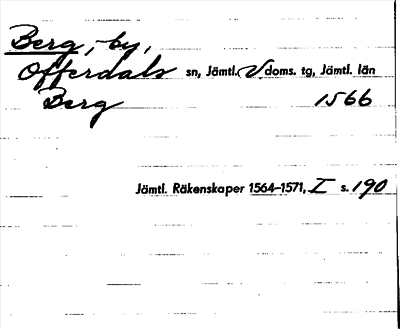 Berg, by,
Offerdals sn, Jämtl. V. doms. tg, Jämtl. län
Berg 1566
Jämtl. Räkenskaper 1564-1571, I s. 190